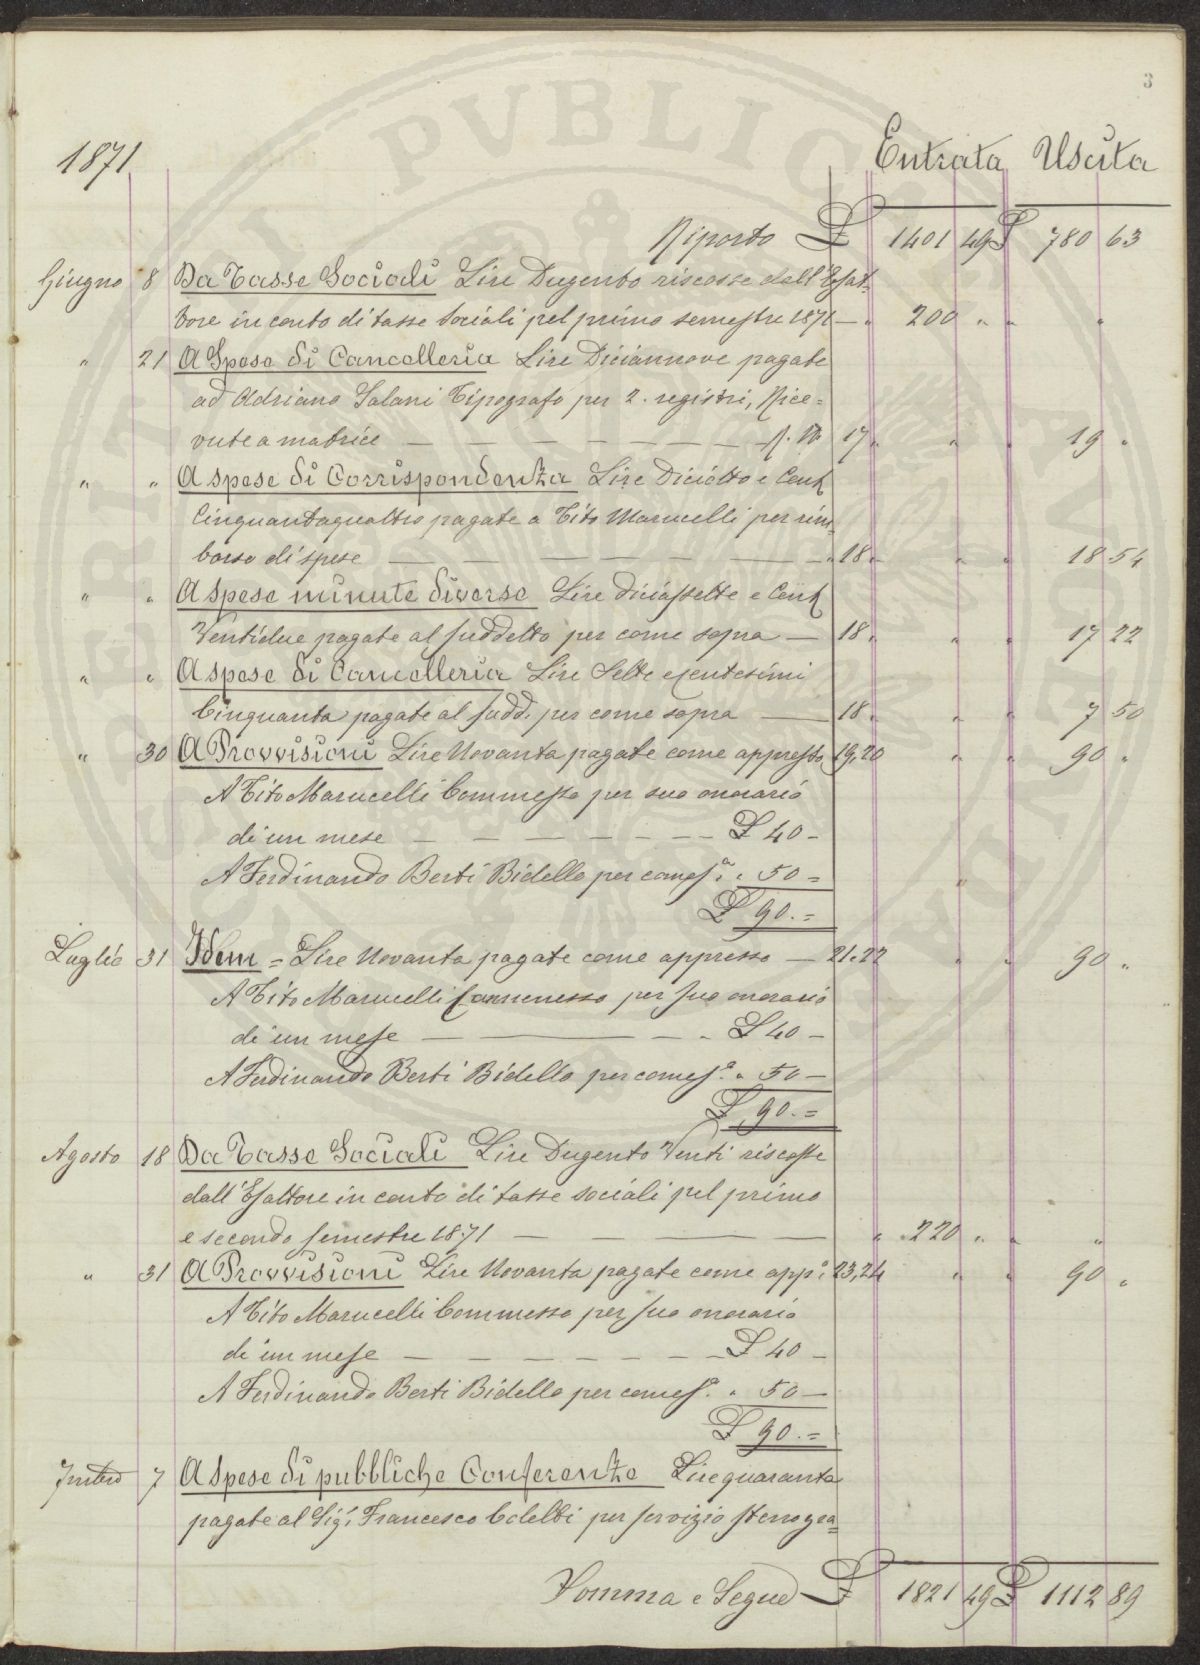 3
1871 Entrata Uscita
Riporto £ 1401 49 £ 780 63
Giugno 8 Da Tasse Sociali Lire Dugento riscosse dall'Esat-
tore in conto di tasse sociali pel primo semestre 1871 — " 200 " " "
" 21 A Spese di Cancelleria Lire Diciannove pagate
ad Adriano Salani Tipografo per 2. registri, Rice=
vute a matrice — 17 " " " 19 "
" " A spese di Corrispondenza Lire Diciotto e Cent
Cinquantaquattro pagate a Tito Marucelli per rim-
borso di spese — " 18 " " " 18 54
" " A spese minute diverse Lire diciassette e Cent
Ventidue pagate al suddetto per come sopra — 18 " " " 17 22
" " A spese di Cancelleria Lire Sette e centesimi
Cinquanta pagate al sudd. per come sopra — 18 " " " 7 50
" 30 A Provvisioni Lire Novanta pagate come appresso 19,20 " " 90 "
A Tito Marucelli Commesso per suo onorario
di un mese — £ 40 -
A Ferdinando Berti Bidello per come sa. " 50 =
£ 90. =
Luglio 31 Idem = Lire Novanta pagate come appresso — 21.22 " " 90 "
A Tito Marucelli Commesso per suo onorario
di un mese — £ 40 -
A Ferdinando Berti Bidello per come sa. " 50 —
£ 90. =
Agosto 18 Da Tasse Sociali Lire Dugento Venti riscosse
dall'Esattore in conto di tasse sociali pel primo
e secondo semestre 1871 — " 220 " " "
" 31 A Provvisioni Lire Novanta pagate come app.o 23,24 " " 90 "
A Tito Marucelli Commesso per suo onorario
di un mese — £ 40 -
A Ferdinando Berti Bidello per come sa. " 50 —
£ 90. =
7 A spese di pubbliche Conferenze Lire quaranta
pagate al Sig.r Francesco per servizio stenogra=
Somma e Segue £ 1821 49 £ 1112 89